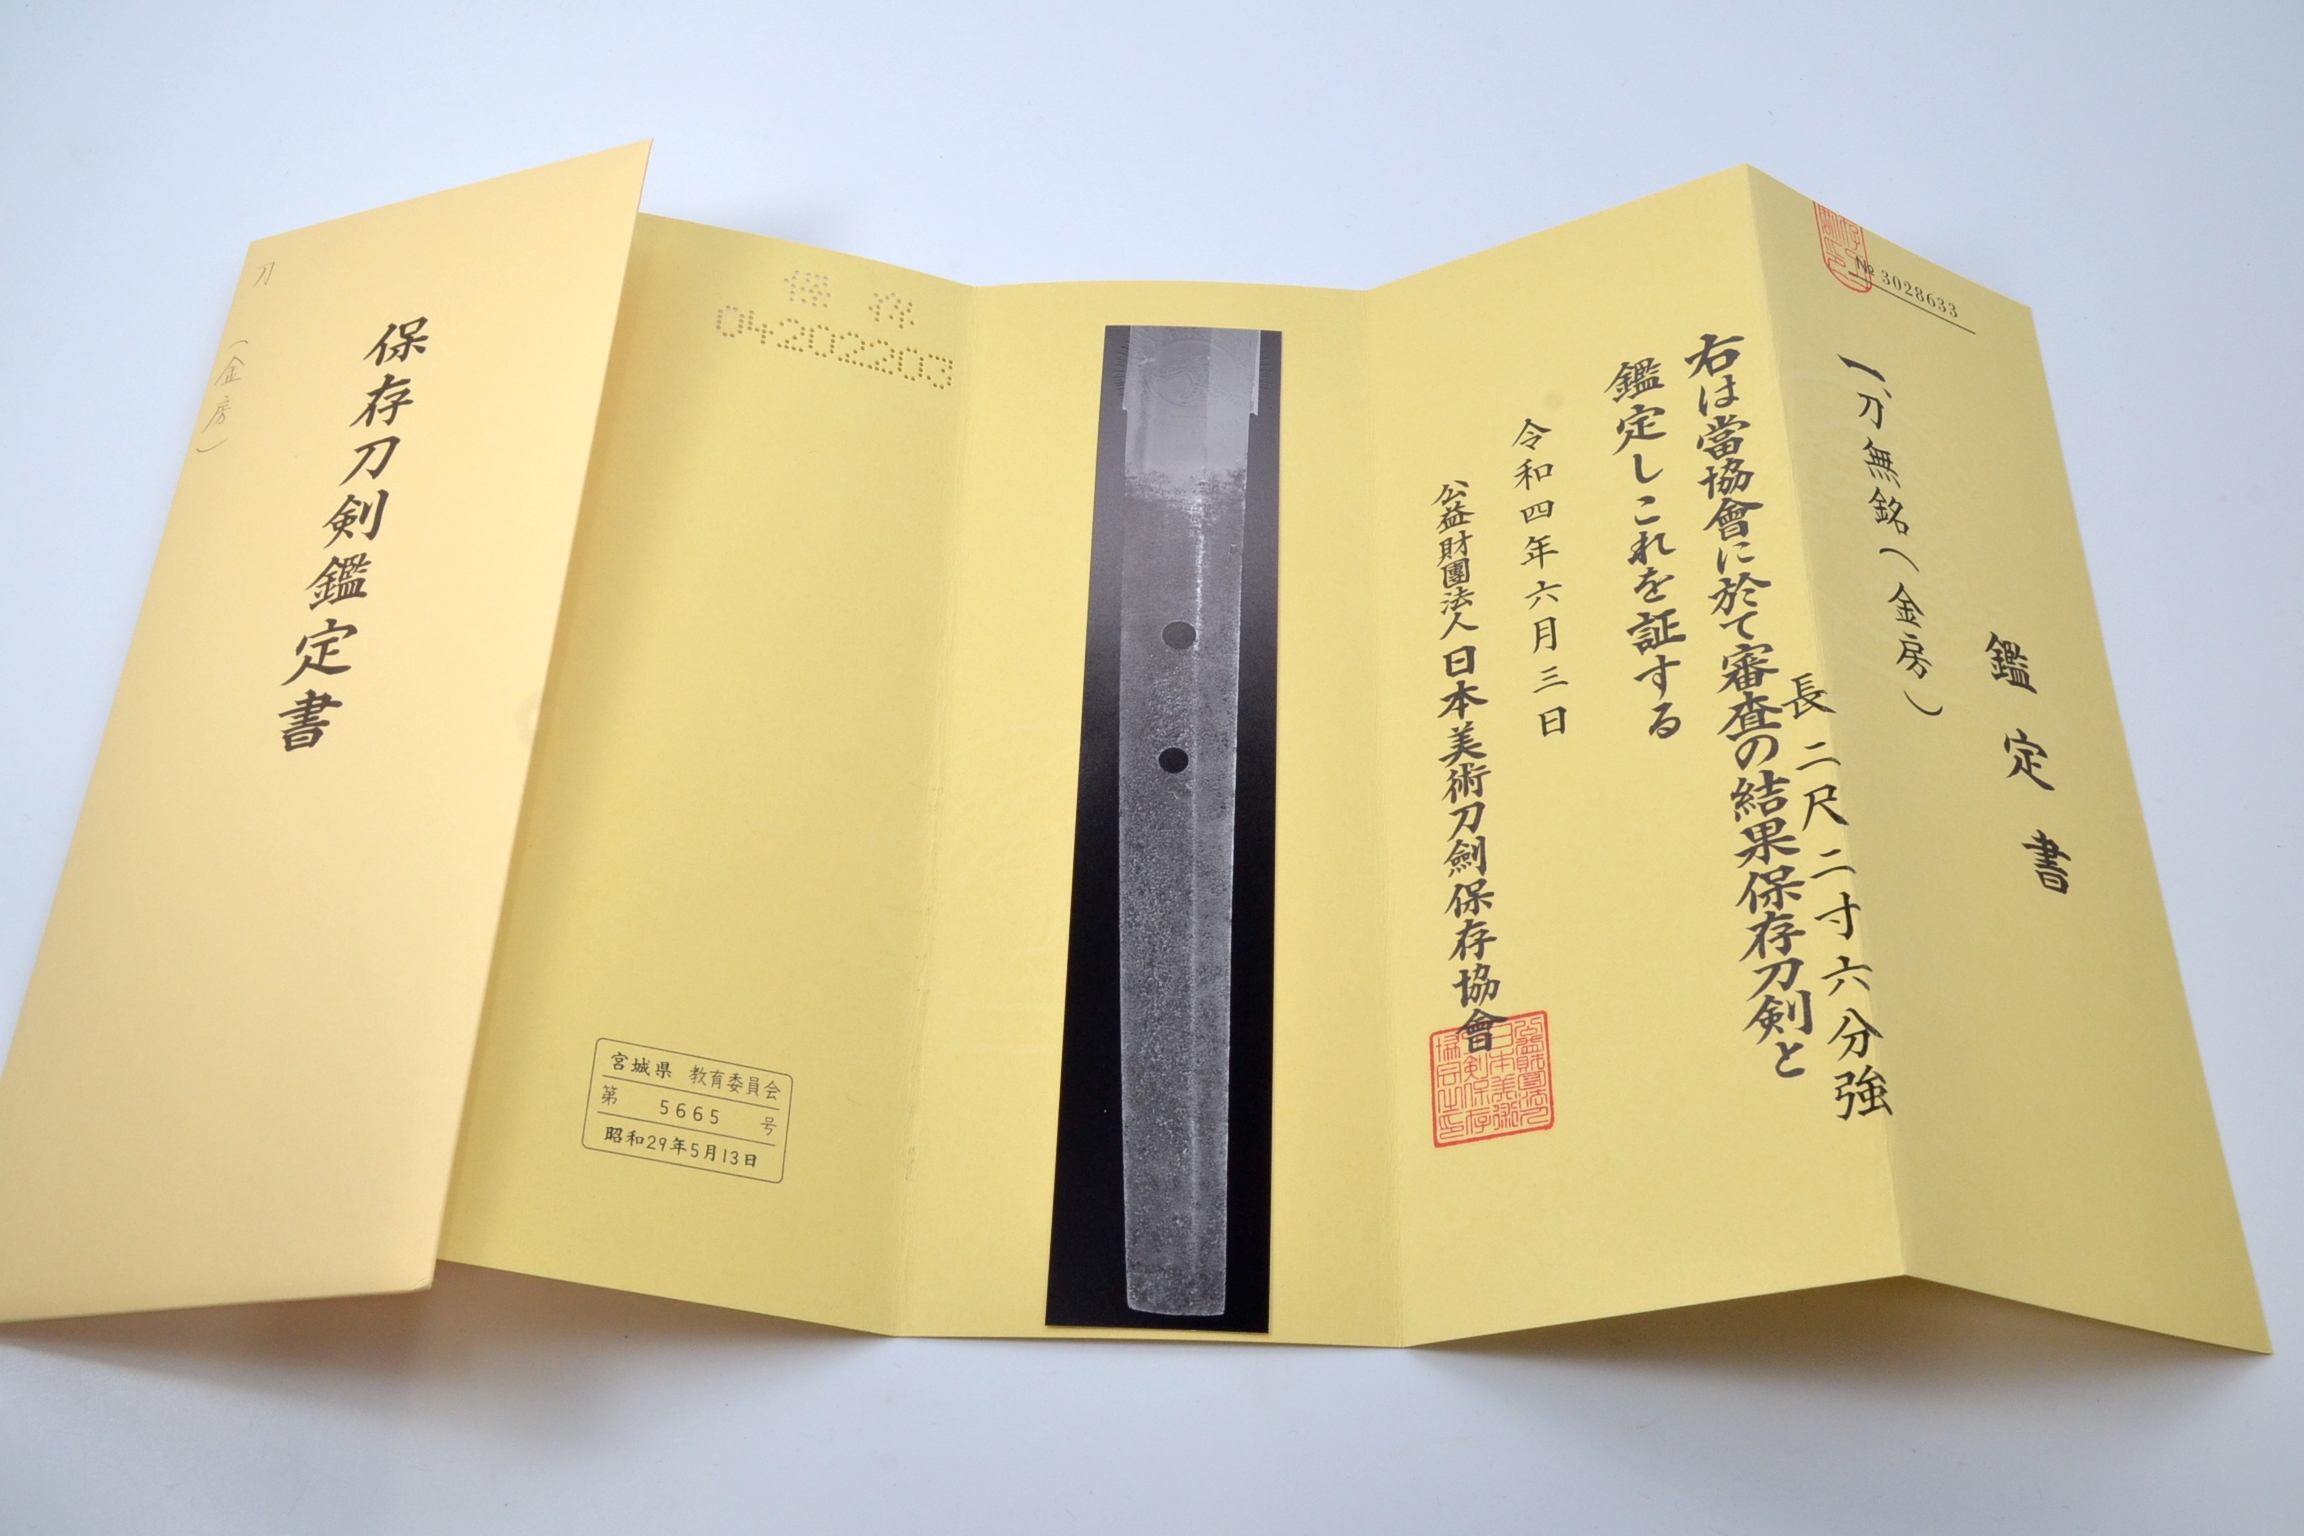 鑑定書
№ 3028633
一、刀 無銘(金房)
長 二尺二寸六分強
右は當協會に於て審査の結果保存刀剣と
鑑定しこれを証する
令和四年六月三日
公益財團法人 日本美術刀劍保存協會
保存
04202203
宮城県 教育委員会
第 5665 号
昭和29年5月13日
保存刀剣鑑定書
刀
(金房)